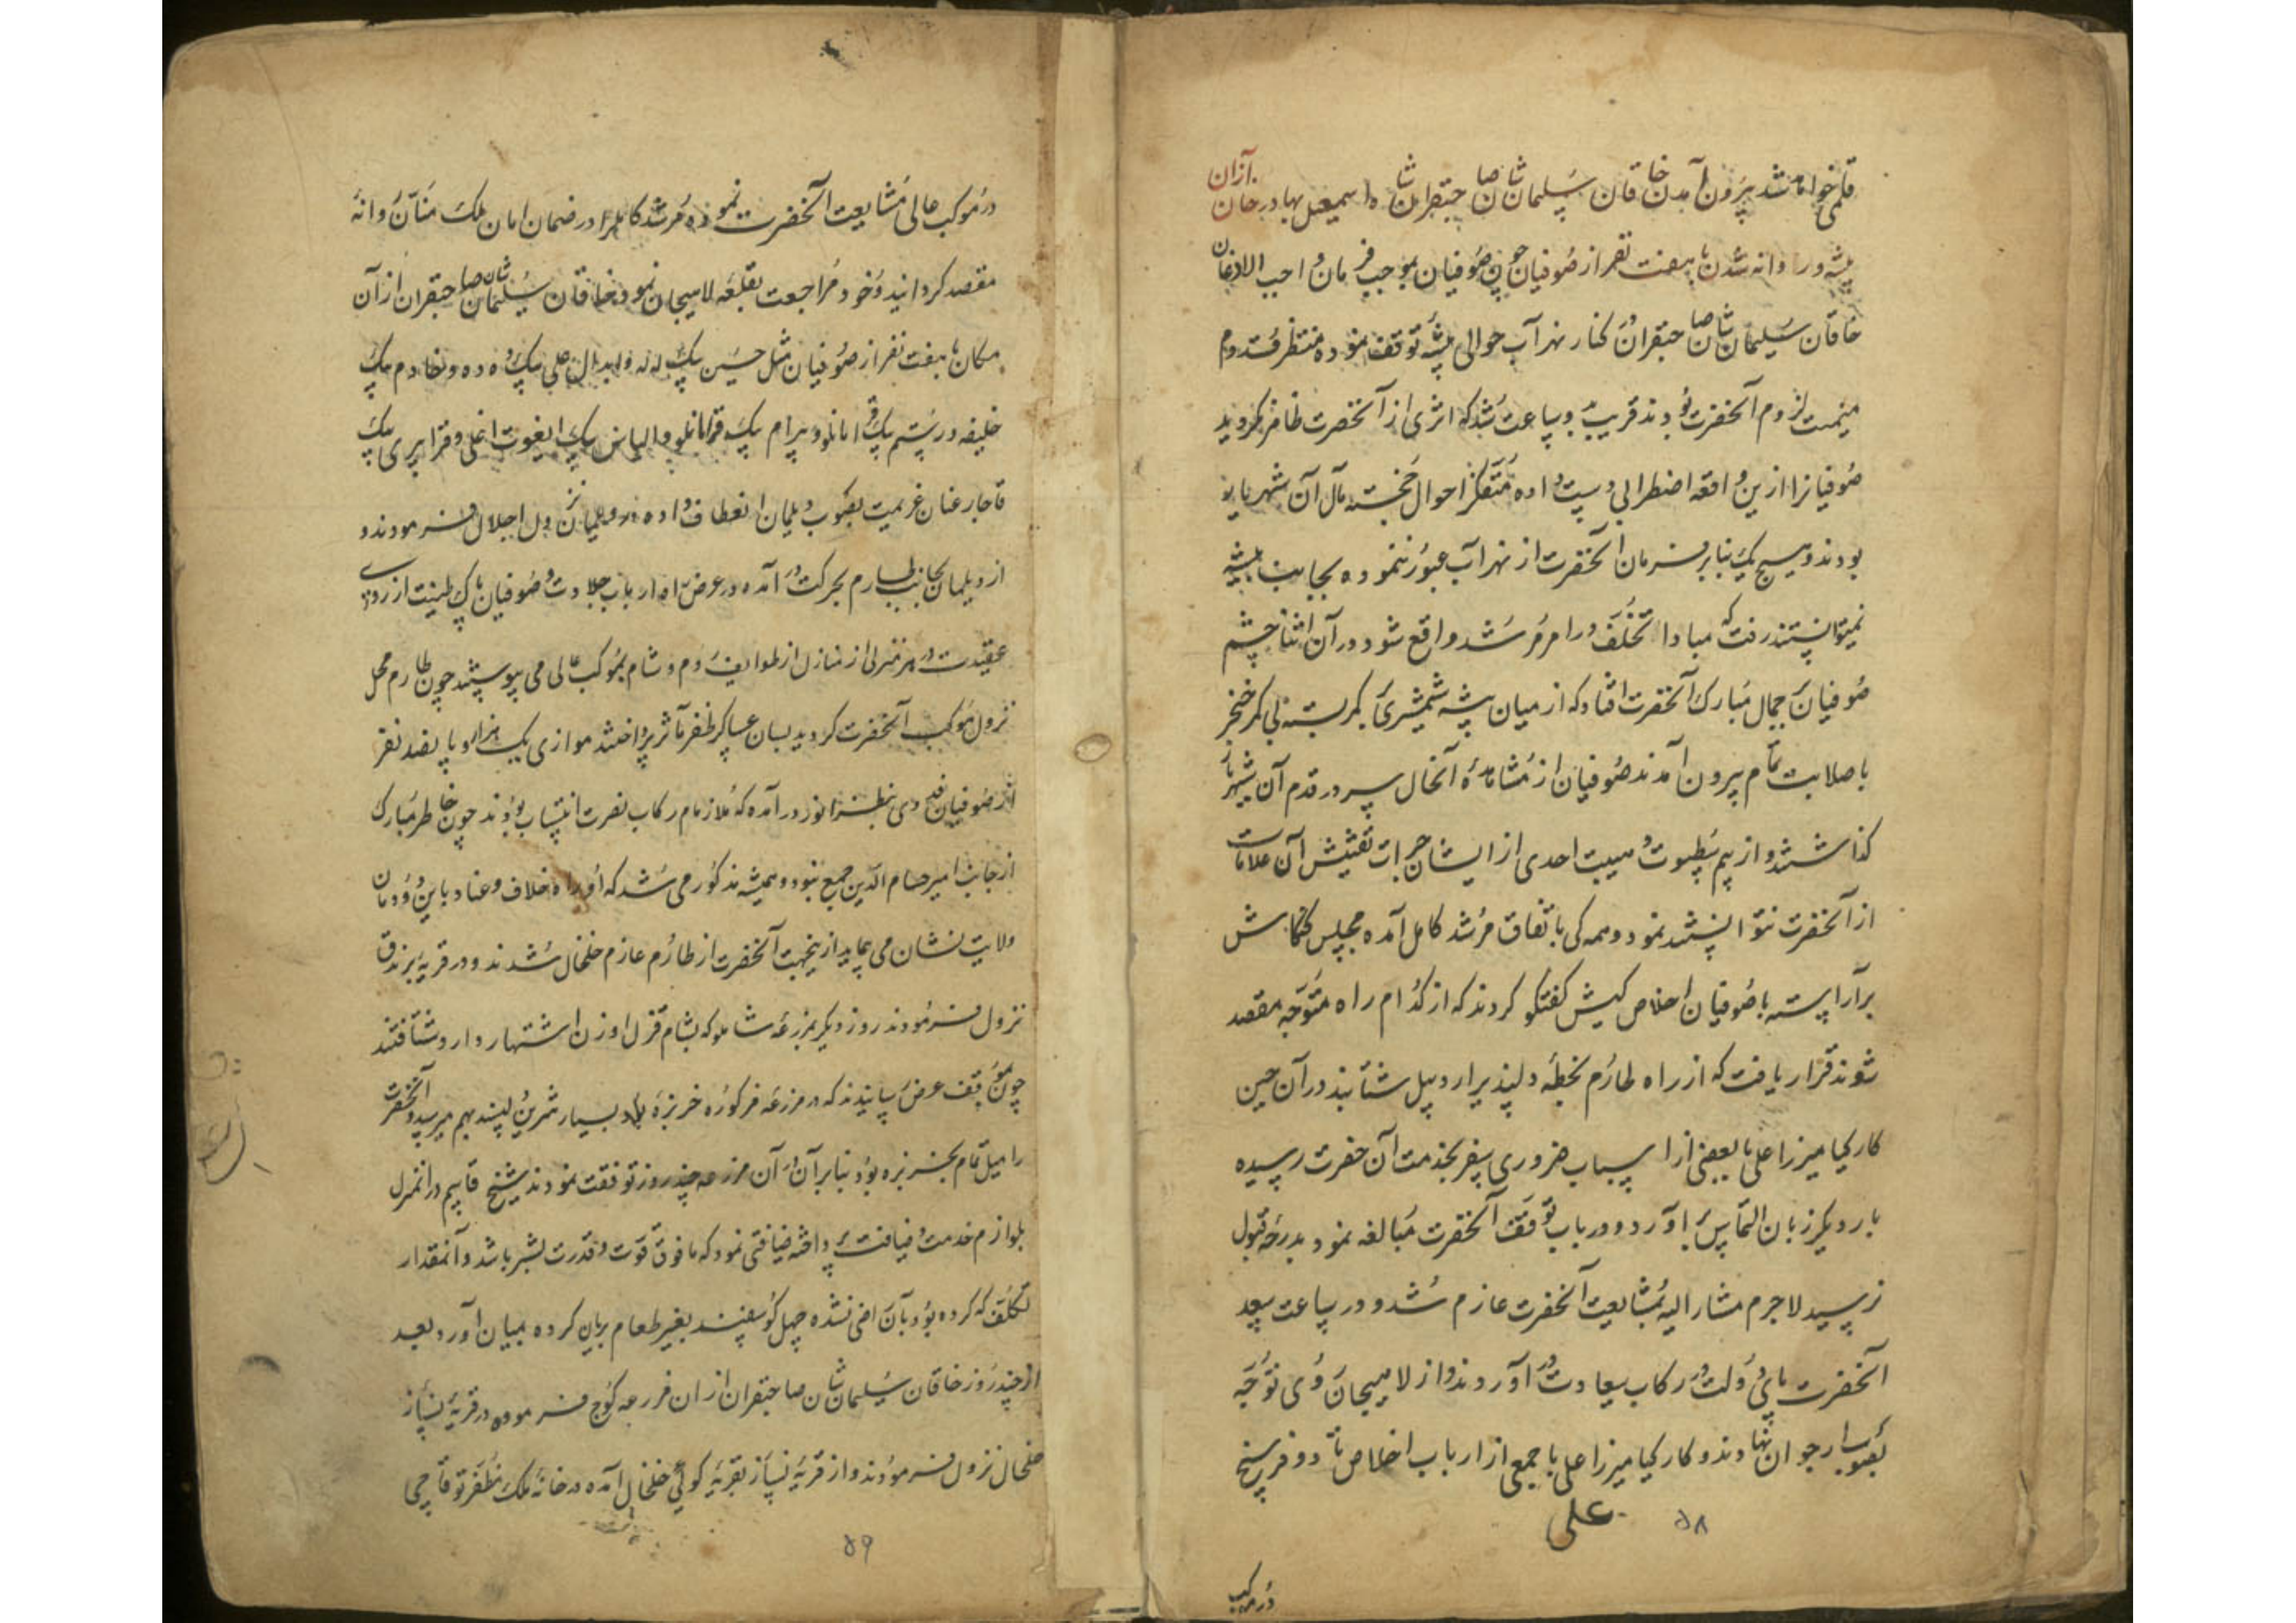 قلمی خواهد شد بیرون آمدن خاقان سلیمان شان صاحبقران شاه اسمعیل بهادر خان ازان
بیشه و روانه شدن با هفت نفر از صوفیان چون صوفیان بموجب فرمان واجب الاذعان
خاقان سلیمان شان صاحبقران در کنار نهر آب حوالی بیشه توقف نموده منتظر قدوم
میمنت لزوم آنحضرت بودند قریب بدو ساعت شد که اثری از آنحضرت ظاهر نگردید
صوفیانرا ازین واقعه اضطرابی دست داده متفکر احوال خجسته مآل آن شهریار
بودند و هیچ یک بنابر فرمان آنحضرت از نهر آب عبور ننموده بجانب بیشه
نمیتوانستند رفت که مبادا تخلف در امر مرشد واقع شود در آن اثنا چشم
صوفیان بر جمال مبارک آنحضرت افتاد که از میان بیشه شمشیری بر کمر بسته بی کمر خنجر
با صلابت تمام بیرون آمدند صوفیان از مشاهدهٔ آنحال سر در قدم آن شهریار
گذاشتند و از بیم سطوت و هیبت احدی از ایشان جرات تفتیش آن علامات
از آنحضرت نتوانستند نمود و همه کی باتفاق مرشد کامل آمده مجلس کنکاش
برآراسته با صوفیان اخلاص کیش گفتگو کردند که از کدام راه متوجه مقصد
شوند قرار یافت که از راه طارم بخطهٔ دلپذیر اردبیل شتابند در آن حین
کارکیا میرزا علی با بعضی از اسباب ضروری سفر بخدمت آن حضرت رسیده
بار دیگر زبان التماس بر آورد و در باب توقف آنحضرت مبالغه نمود بدرجهٔ قبول
نرسید لاجرم مشارالیه بمشایعت آنحضرت عازم شد و در ساعت سعد
آنحضرت پای دولت در رکاب سعادت در آوردند و از لاهیجان روی توجه
بصوب ارجوان نهادند و کارکیا میرزا علی با جمعی از ارباب اخلاص تا دو فرسخ
علی
۵۸
در موکب
در موکب عالی مشایعت آنحضرت نموده مرشد کامل را در ضمان امان ملک منان روانهٔ
مقصد گردانید و خود مراجعت بقلعه لاهیجان نمود خاقان سلیمان شان صاحبقران از آن
مکان با هفت نفر از صوفیان مثل حسین بیک لله و ابدال علی بیک دده و خادم بیک
خلیفه و رستم بیک قرامانلو و بیرام بیک قرامانلو و الیاس بیک ایغوت اغلی و قرا پیری بیک
قاجار عنان عزیمت بصوب دیلمان انعطاف داده در دیلمان نزول اجلال فرمودند و
از دیلمان بجانب طارم بحرکت در آمده در عرض راه ارباب جلادت و صوفیان پاک طینت از روی
عقیدت در هر منزلی از منازل از طوایف روم و شام بموکب عالی می پیوستند چون طارم محل
نزول موکب آنحضرت گردید بسان عساکر ظفر مآثر پرداختند موازی یک هزار و پانصد نفر
از صوفیان فدوی بنظر انور در آمده که ملازمان رکاب نصرت انتساب بودند چون خاطر مبارک
از جانب امیر حسام الدین جمع نبود و همیشه مذکور می شد که او راه خلاف و عناد با این دودمان
ولایت نشان می پیماید ازینجهت آنحضرت از طارم عازم خلخال شدند و در قریهٔ برندق
نزول فرمودند روز دیگر بمزرعه شاملو که بشام قزل اوزن اشتهار دارد شتافتند
چون بموقف عرض رسانیدند که در مزرعه مذکوره خربزهٔ بسیار شیرین و پسند بهم میرسید و آنحضرت
را میل تمام بخربزه بود بنابر آن در آن مزرعه چند روز توقف نمودند شیخ قاسم در آنمنزل
بلوازم خدمت و ضیافت پرداخته ضیافتی نمود که ما فوق قوت و قدرت بشر باشد و آنمقدار
تکلف که کرده بود بآن راضی نشده چهل گوسفند بغیر طعام بریان کرده بمیان آورد بعد
از چند روز خاقان سلیمان شان صاحبقران از ان مزرعه کوچ فرموده در قریهٔ نساز
خلخال نزول فرمودند و از قریهٔ نساز بقریهٔ کوئی خلخال آمده در خانهٔ ملک مظفر توقاچی
۵۹